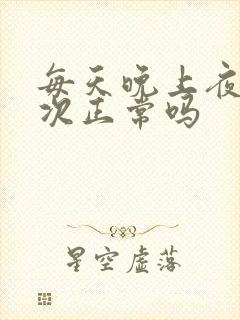 每天晚上夜
次正常吗
星空虚落